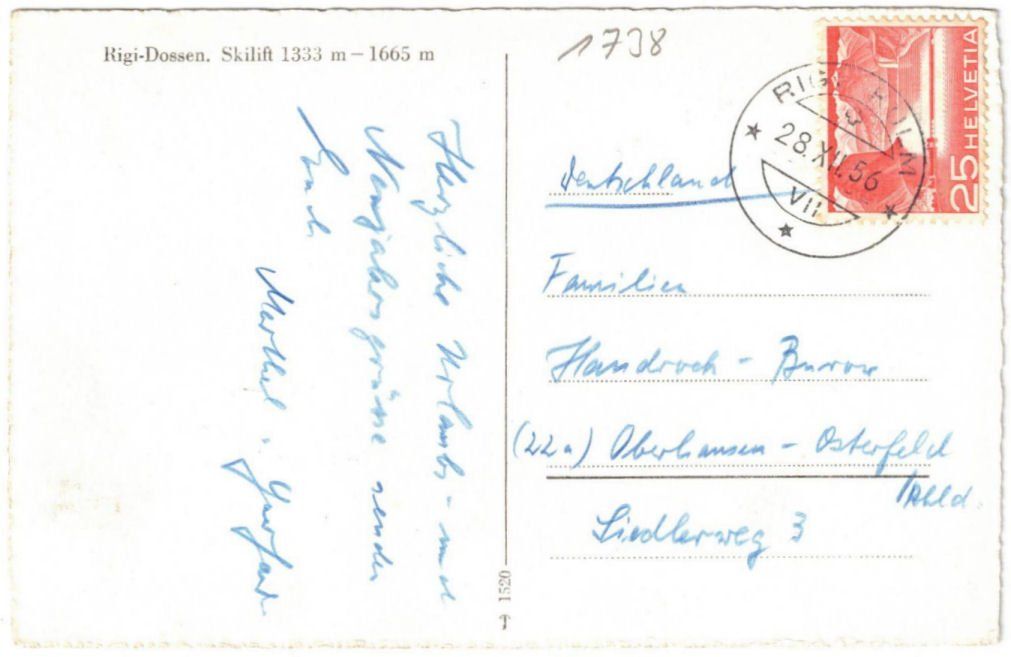 Rigi-Dossen. Skilift 1333 m – 1665 m
1738
RIGI KULM
28.XII.56
VII
25 HELVETIA
Herzliche Urlaubs- und
Neujahrsgrüsse senden
Euch
Marthel
Deutschland
Familien
Handrock - Burow
(22a) Oberhausen - Osterfeld
/Rhld.
Siedlerweg 3
1520